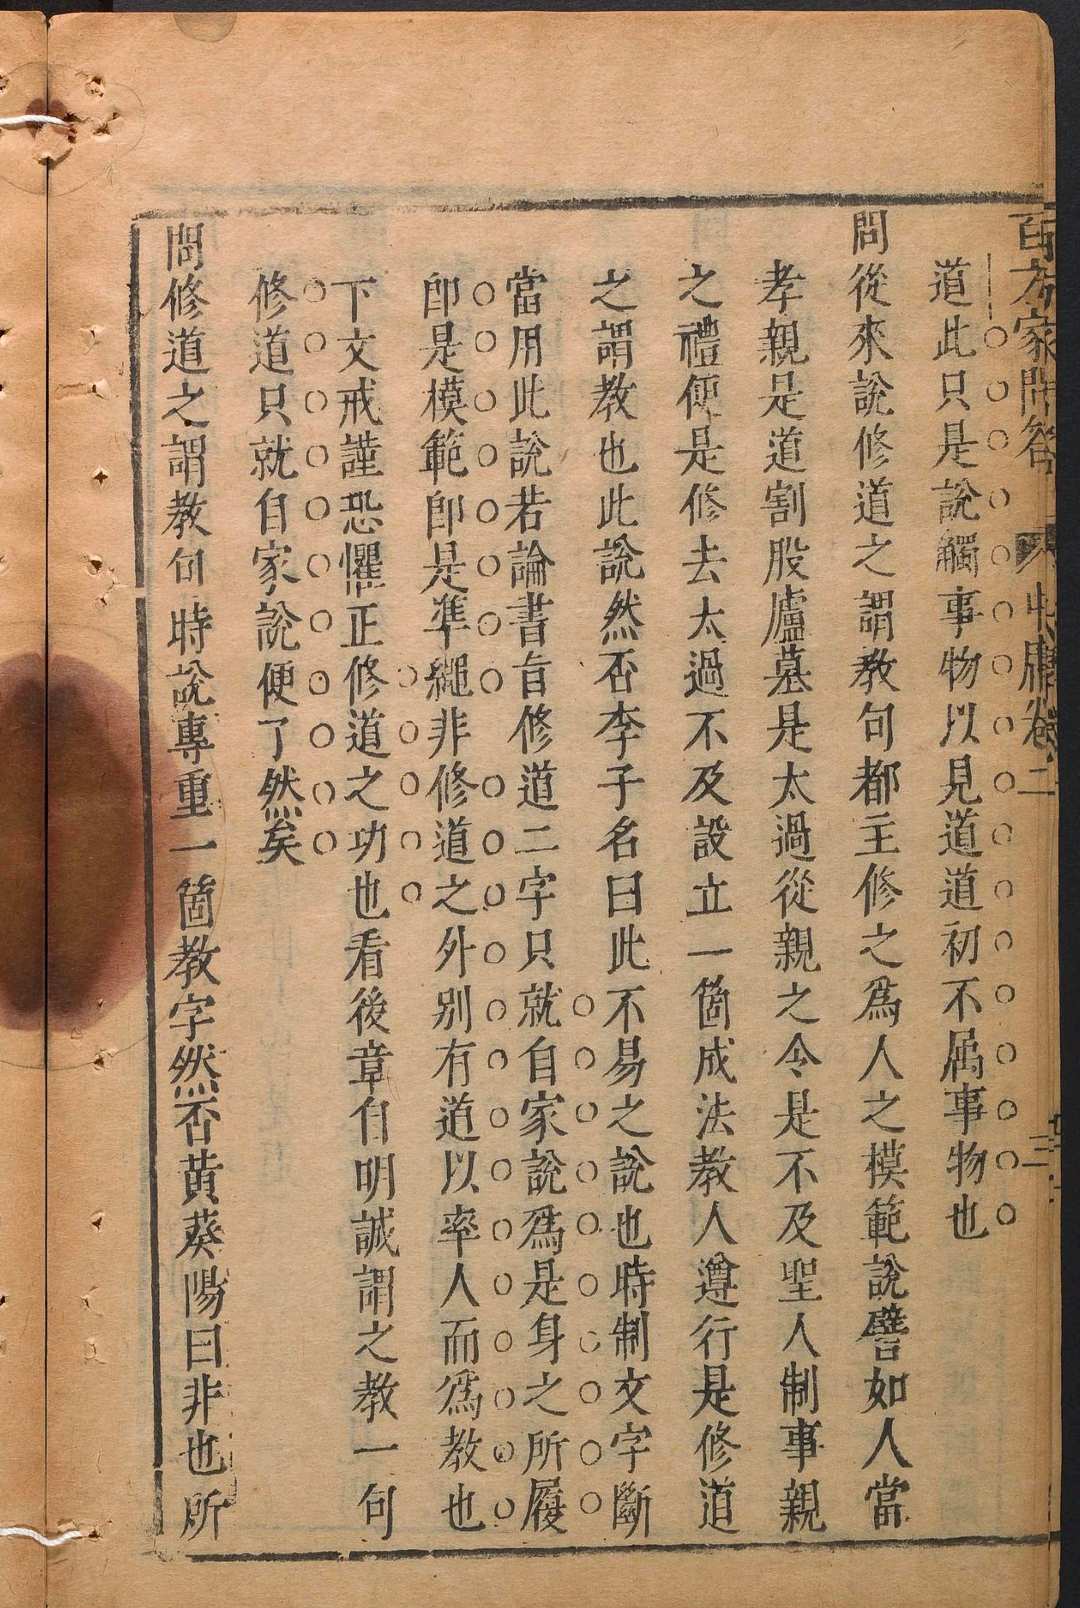 百方家問答 中庸卷二 三
道此只是說觸事物以見道道初不属事物也
問從來說修道之謂教句都主修之爲人之模範說譬如人當
孝親是道割股廬墓是太過從親之令是不及聖人制事親
之禮便是修去太過不及設立一箇成法教人遵行是修道
之謂教也此說然否李子名曰此不易之說也時制文字斷
當用此說若論書旨修道二字只就自家說爲是身之所履
卽是模範卽是準繩非修道之外別有道以率人而爲教也
下文戒謹恐懼正修道之功也看後章自明誠謂之教一句
修道只就自家說便了然矣
問修道之謂教句時說專重一箇教字然否黃葵陽曰非也所